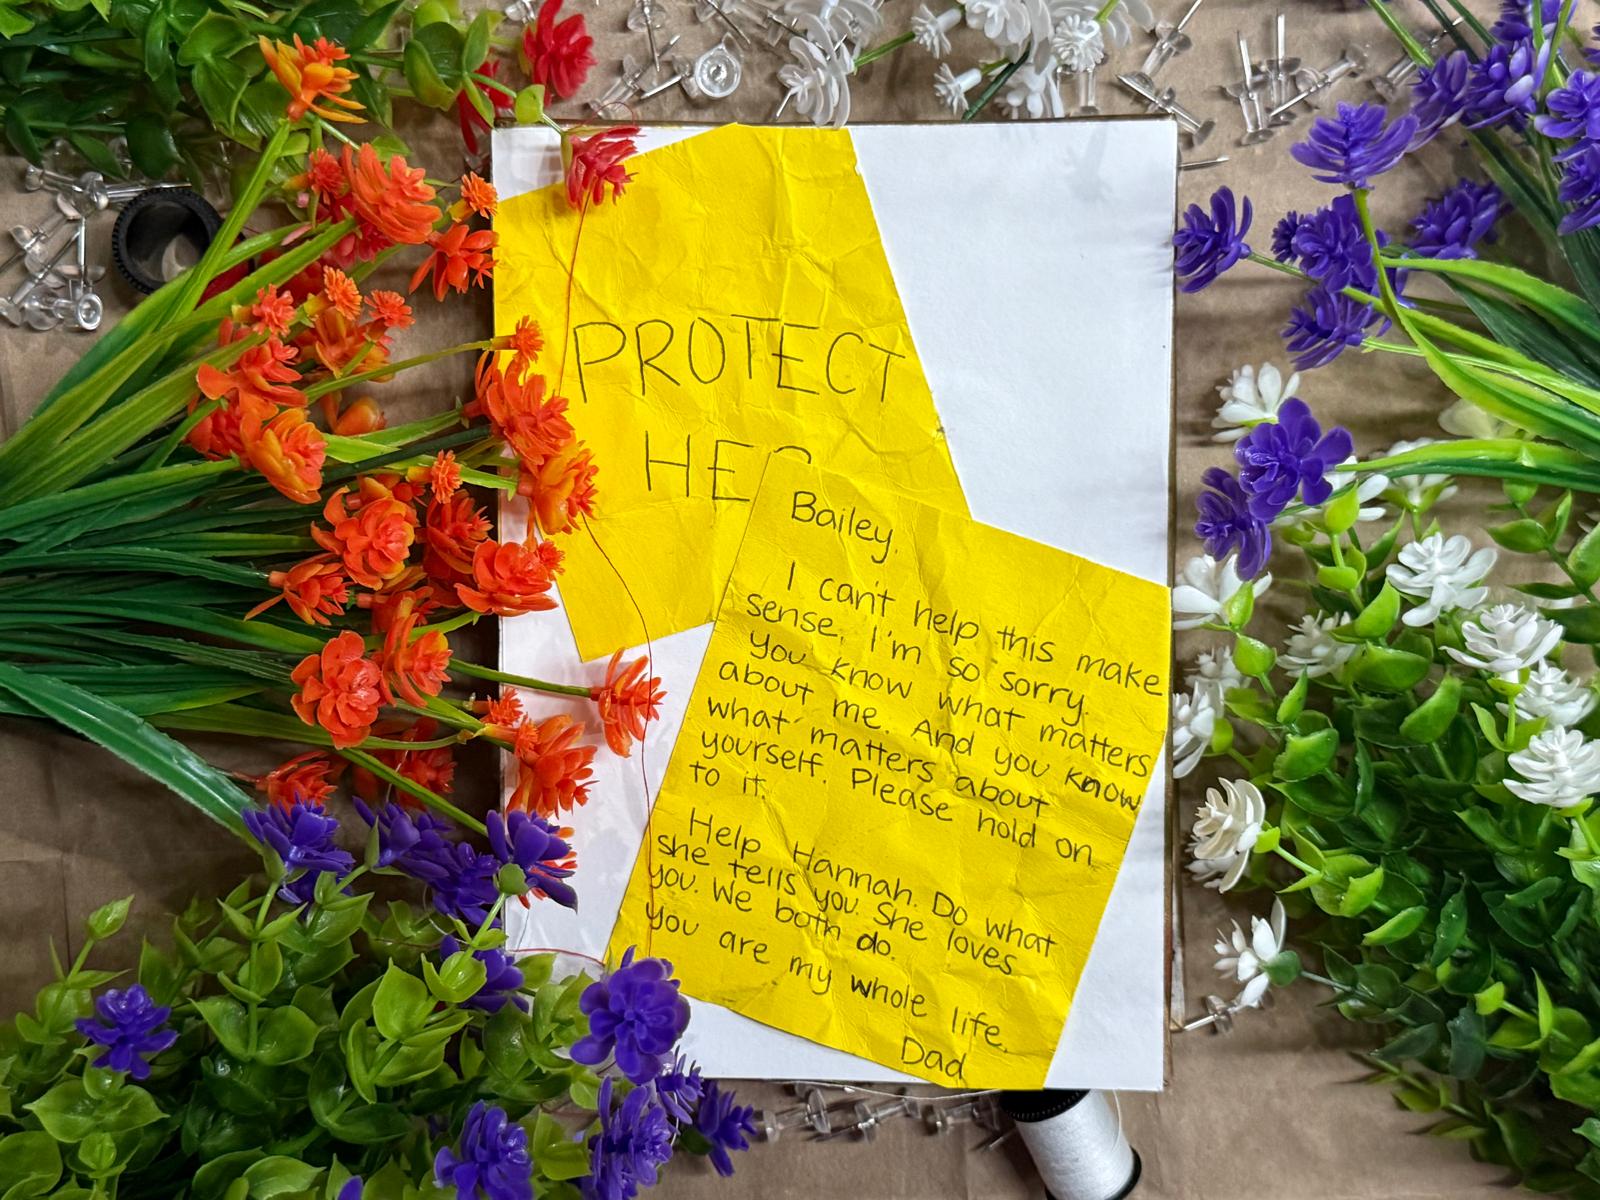 PROTECT
HER
Bailey,
I can't help this make
sense. I'm so sorry.
You know what matters
about me. And you know
what matters about
yourself. Please hold on
to it.
Help Hannah. Do what
she tells you. She loves
you. We both do.
You are my whole life.
Dad